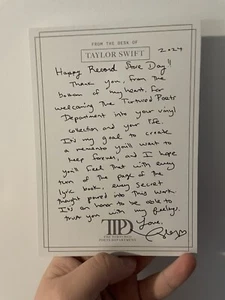 FROM THE DESK OF
TAYLOR SWIFT
2024
Happy Record Store Day!!
Thank you, from the
bottom of my heart, for
welcoming the Tortured Poets
Department into your vinyl
collection and your life.
It's my goal to create
a memento you'll want to
keep forever, and I hope
you'll feel that with every
turn of the page of the
lyric book, every secret
thought poured into this work.
It's an honor to be able to
trust you with my feelings.
Love,
TTPD
THE TORTURED
POETS DEPARTMENT